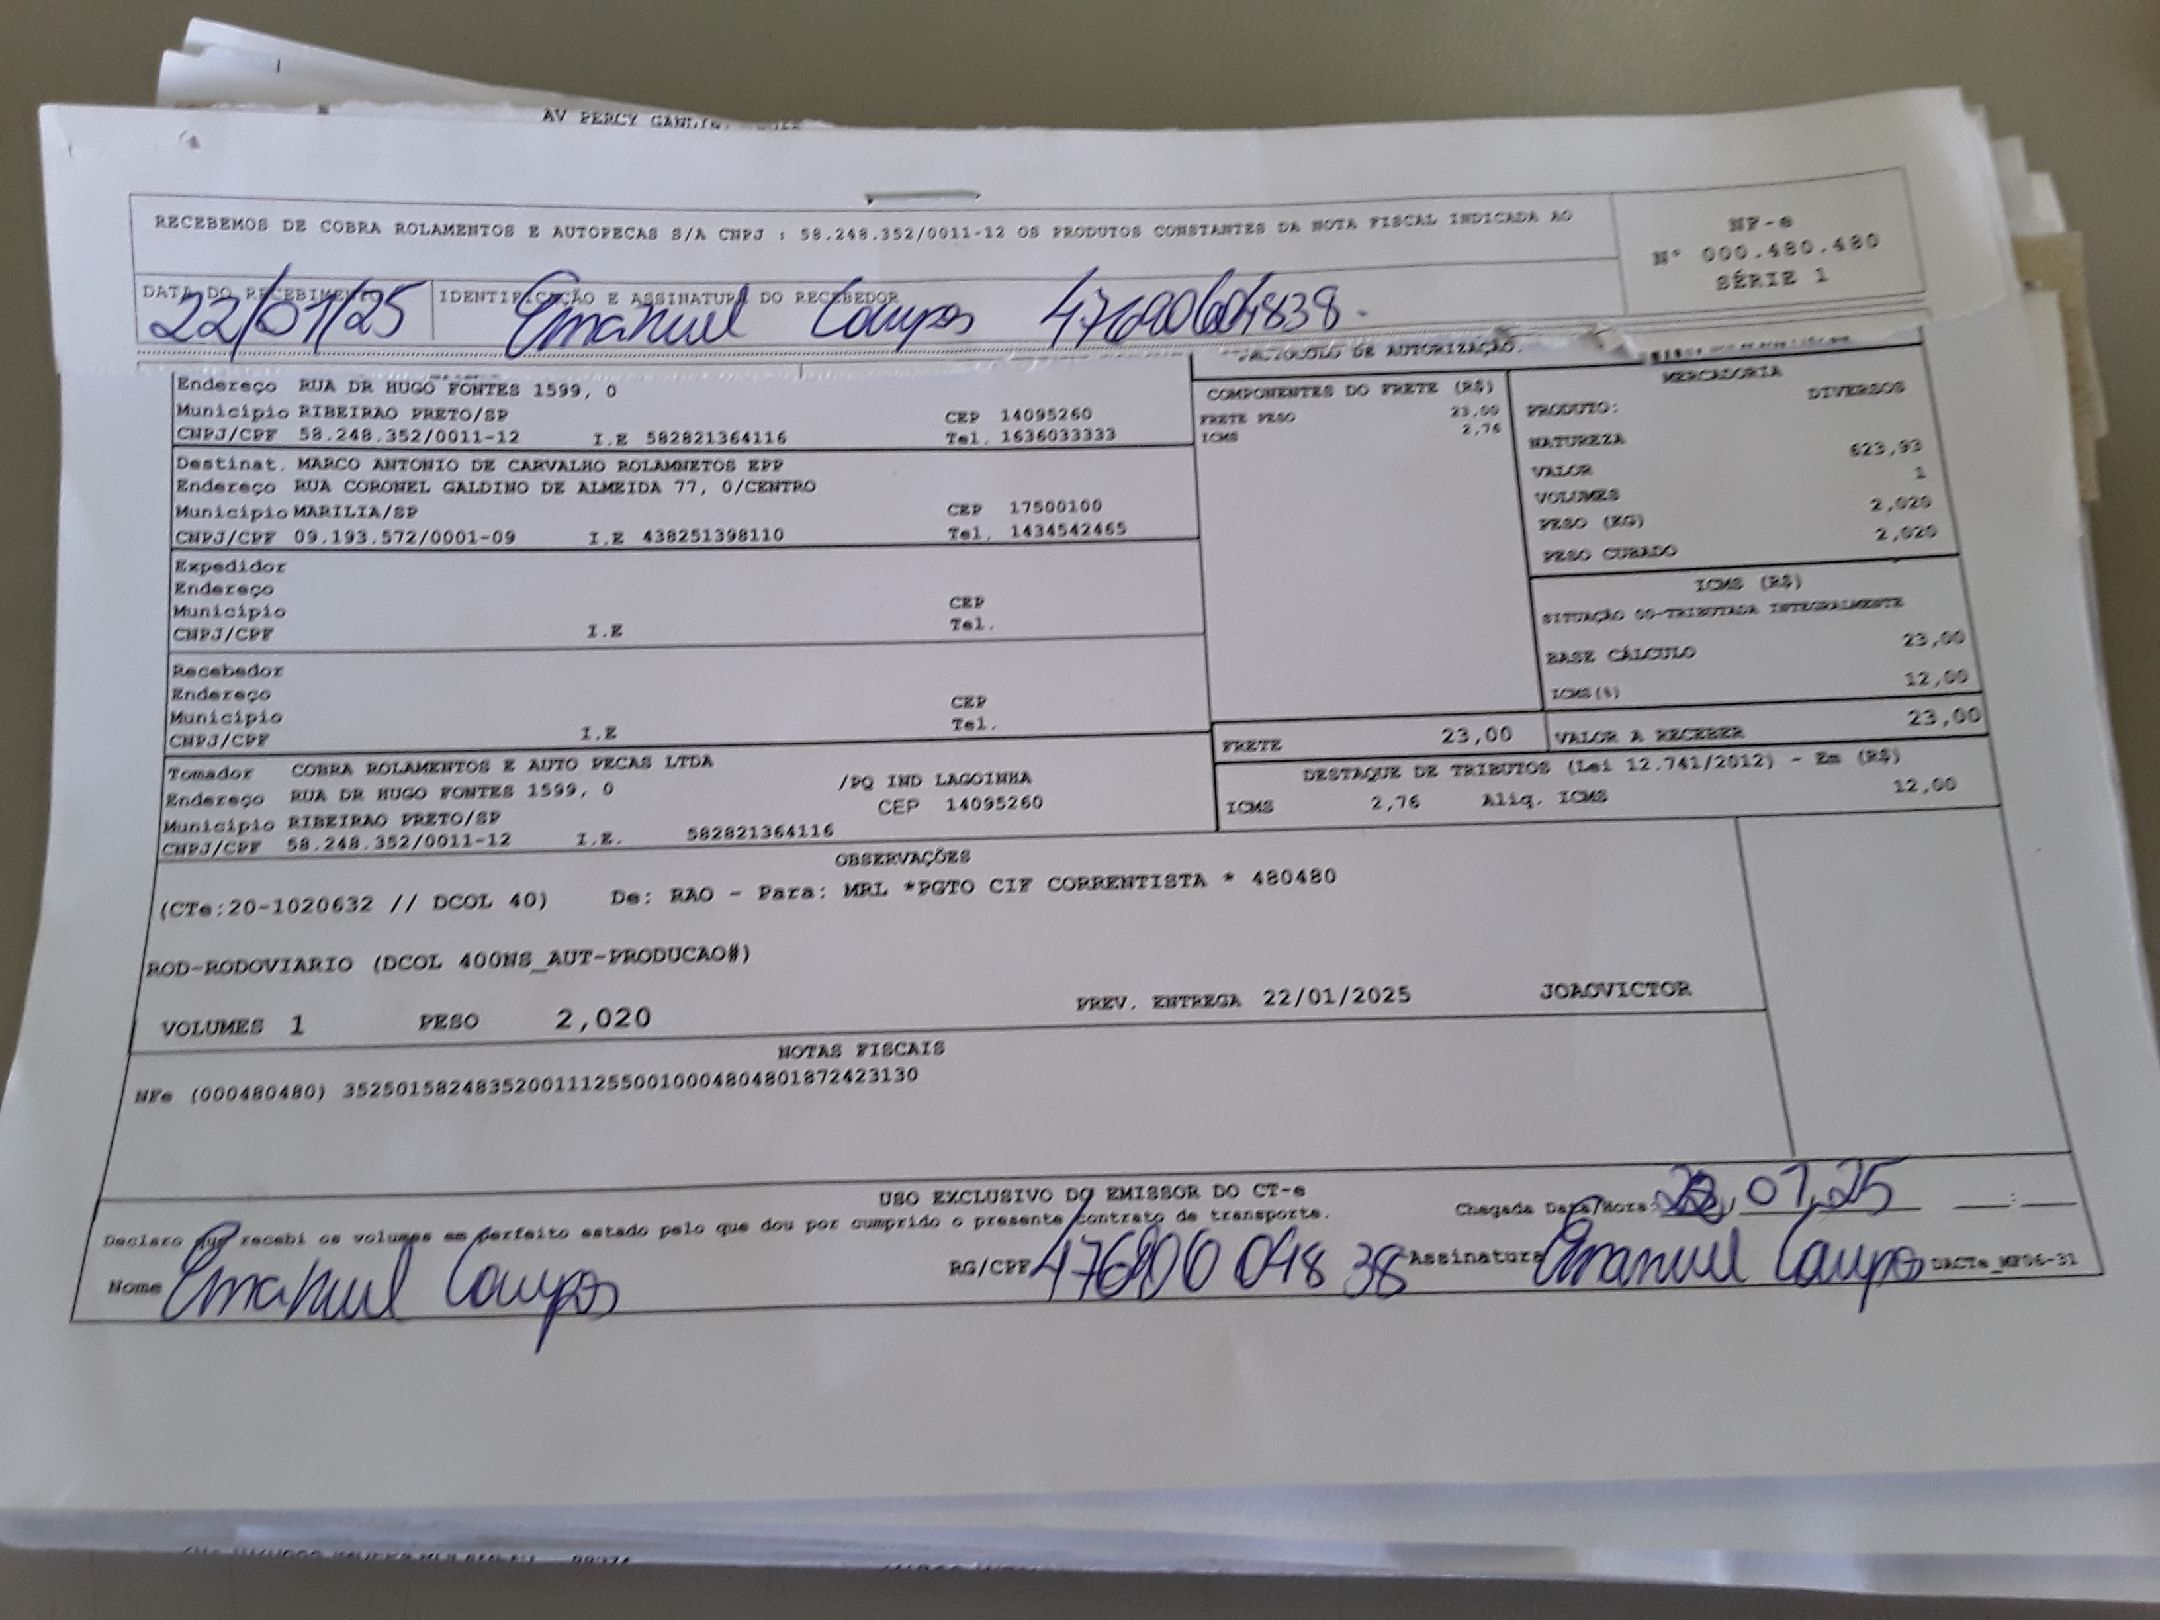 AV PERCY
RECEBEMOS DE COBRA ROLAMENTOS E AUTOPECAS S/A CNPJ : 58.248.352/0011-12 OS PRODUTOS CONSTANTES DA NOTA FISCAL INDICADA AO
NF-e
Nº 000.480.480
SÉRIE 1
DATA DO RECEBIMENTO
IDENTIFICAÇÃO E ASSINATURA DO RECEBEDOR
22/01/25 Emanuel Campos
PROTOCOLO DE AUTORIZAÇÃO.
Endereço RUA DR HUGO FONTES 1599, 0
Município RIBEIRAO PRETO/SP CEP 14095260
CNPJ/CPF 58.248.352/0011-12 I.E 582821364116 Tel. 1636033333
Destinat. MARCO ANTONIO DE CARVALHO ROLAMNETOS EPP
Endereço RUA CORONEL GALDINO DE ALMEIDA 77, 0/CENTRO
Município MARILIA/SP CEP 17500100
CNPJ/CPF 09.193.572/0001-09 I.E 438251398110 Tel. 1434542465
Expedidor
Endereço
Município CEP
CNPJ/CPF I.E Tel.
Recebedor
Endereço
Município CEP
CNPJ/CPF I.E Tel.
Tomador COBRA ROLAMENTOS E AUTO PECAS LTDA
Endereço RUA DR HUGO FONTES 1599, 0 /PQ IND LAGOINHA
Município RIBEIRAO PRETO/SP CEP 14095260
CNPJ/CPF 58.248.352/0011-12 I.E. 582821364116
COMPONENTES DO FRETE (R$)
FRETE PESO 23,00
ICMS 2,76
MERCADORIA
PRODUTO: DIVERSOS
NATUREZA
VALOR 623,93
VOLUMES 1
PESO (KG) 2,020
PESO CUBADO 2,020
ICMS (R$)
SITUAÇÃO 00-TRIBUTADA INTEGRALMENTE
BASE CÁLCULO 23,00
ICMS(%) 12,00
FRETE 23,00 VALOR A RECEBER 23,00
DESTAQUE DE TRIBUTOS (Lei 12.741/2012) - Em (R$)
ICMS 2,76 Aliq. ICMS 12,00
OBSERVAÇÕES
(CTe:20-1020632 // DCOL 40) De: RAO - Para: MRL *PGTO CIF CORRENTISTA * 480480
ROD-RODOVIARIO (DCOL 400NS_AUT-PRODUCAO#)
VOLUMES 1 PESO 2,020 PREV. ENTREGA 22/01/2025 JOAOVICTOR
NOTAS FISCAIS
NFe (000480480) 35250158248352001112550010004804801872423130
USO EXCLUSIVO DO EMISSOR DO CT-e
Declaro que recebi os volumes em perfeito estado pelo que dou por cumprido o presente contrato de transporte.
Chegada Data/Hora: 22,01,25 :
Nome Emanuel Campos RG/CPF Assinatura Emanuel Campos DACTe_MP06-31